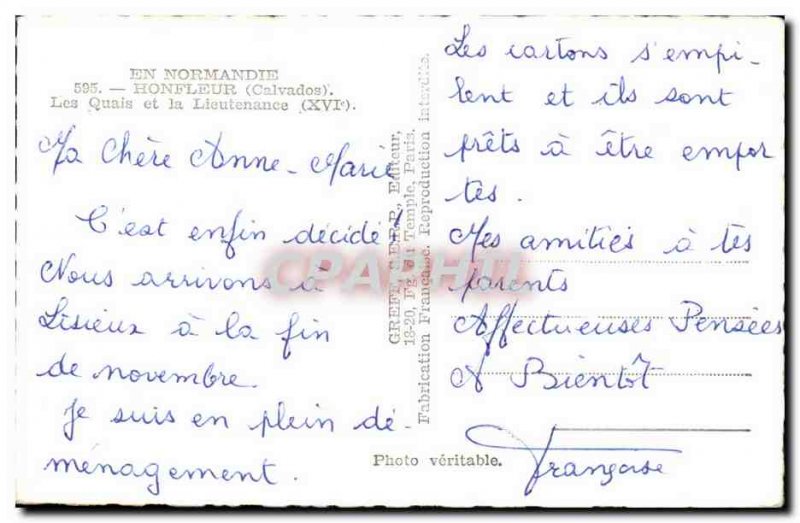 EN NORMANDIE
595. — HONFLEUR (Calvados).
Les Quais et la Lieutenance (XVIe).
Ma Chère Anne-Marie
C'est enfin décidé!
Nous arrivons à
Lisieux à la fin
de novembre.
Je suis en plein dé-
ménagement.
GREFF, S.E.R.P., Editeur,
18-20, Fg du Temple, Paris.
Fabrication Française. Reproduction interdite.
CPAPHIL
Photo véritable.
Les cartons s'empi-
lent et ils sont
prêts à être empor
tés.
Mes amitiés à tes
parents
Affectueuses Pensées
A Bientôt
Françoise